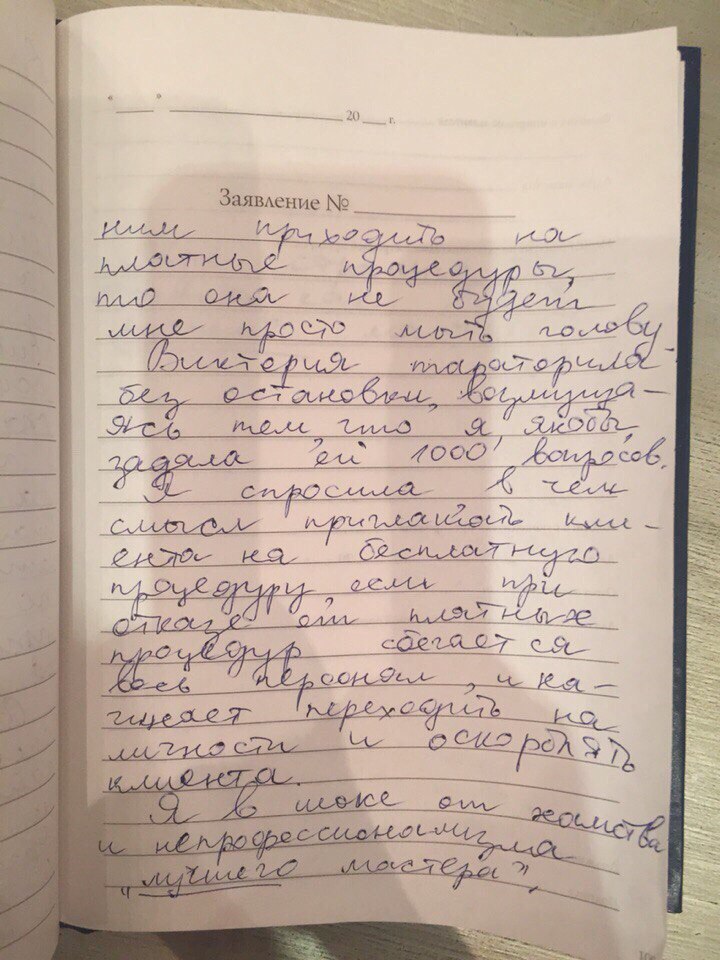 "___" ____________________ 20 ___ г.
Заявление № ______________
ним приходить на
платные процедуры,
то она не будет
мне просто мыть голову.
Виктория тараторила
без остановки, возмуща-
ясь тем, что я, якобы,
задала ей 1000 вопросов.
Я спросила в чем
смысл приглашать кли-
ента на бесплатную
процедуру, если при
отказе от платных
процедур сбегается
весь персонал, и на-
чинает переходить на
личности и оскорблять
клиента.
Я в шоке от хамства
и непрофессионализма
"лучшего мастера",